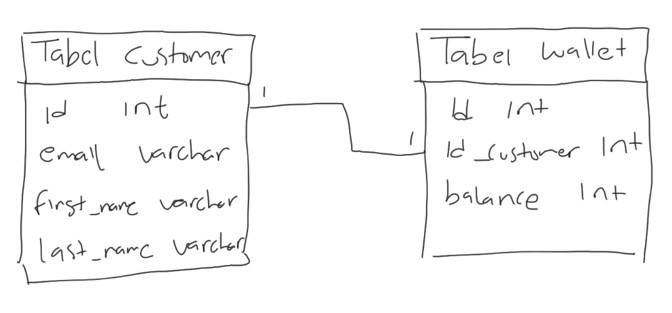 Tabel customer
Id int
email varchar
first_name varchar
last_name varchar
1
1
Tabel wallet
Id Int
Id_customer Int
balance Int